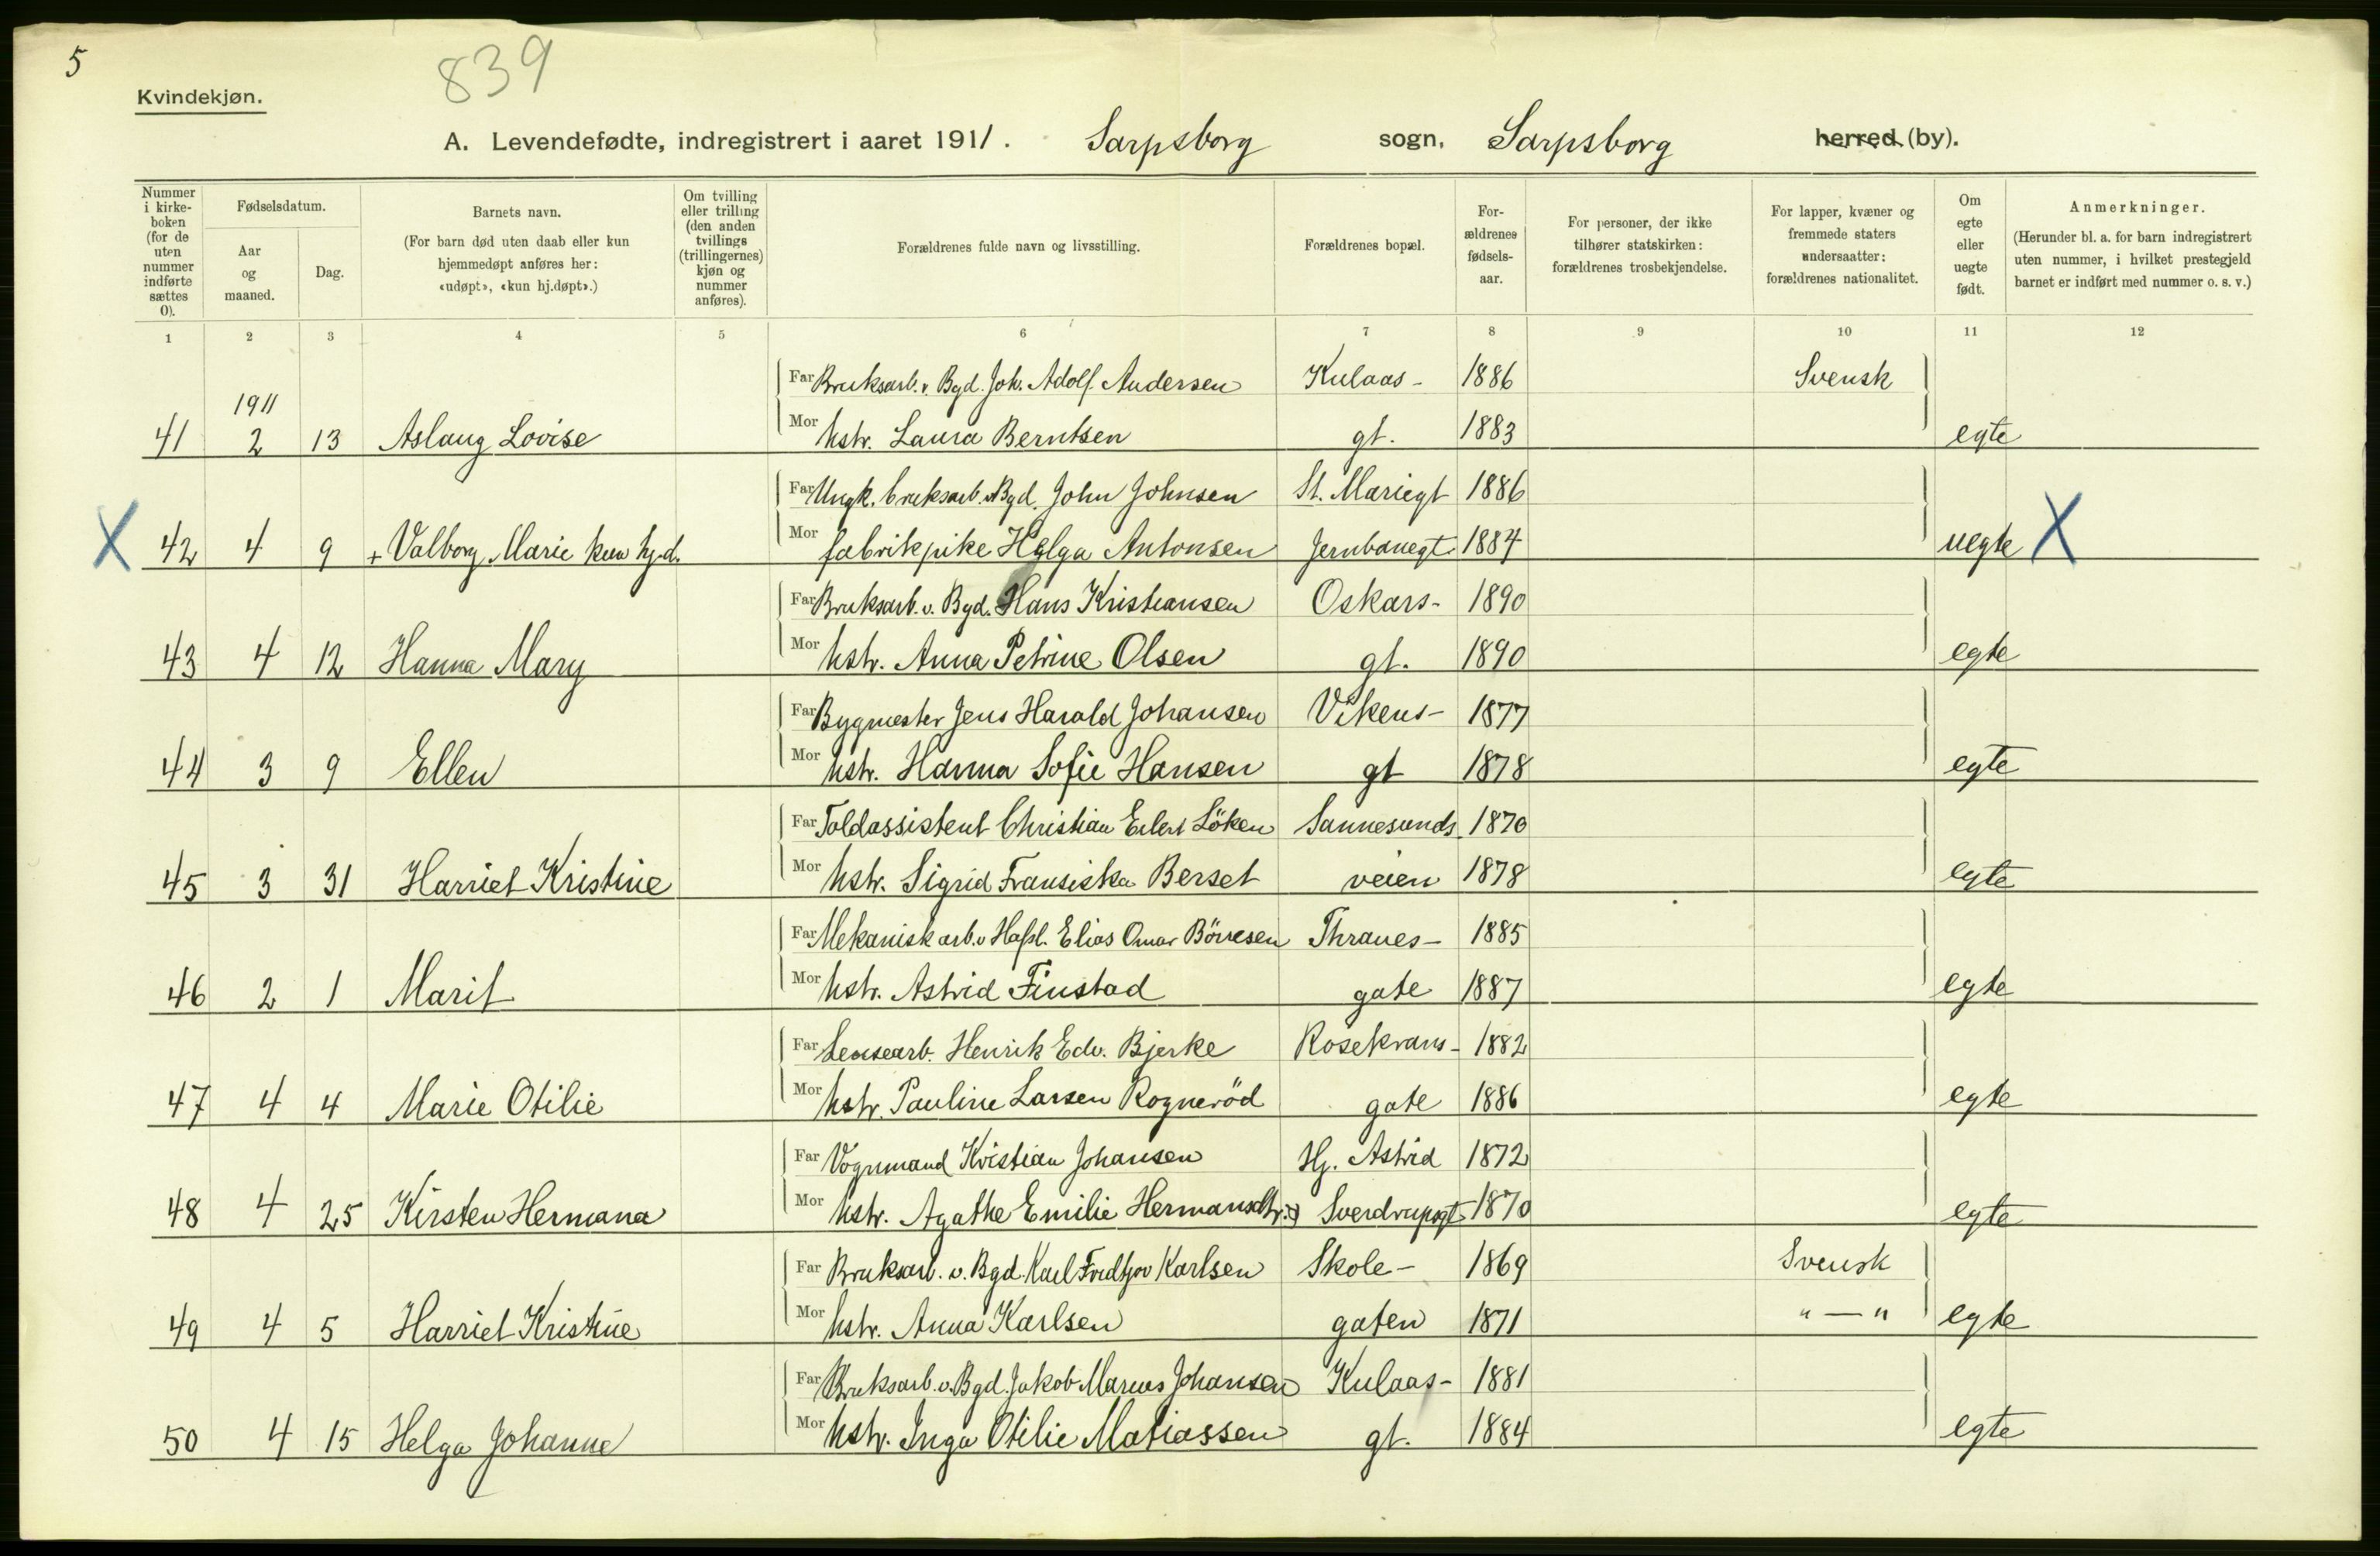 5
839
Kvindekjøn.
A. Levendefødte, indregistrert i aaret 1911. Sarpsborg sogn, Sarpsborg herred (by).
Nummer i kirkeboken (for de uten nummer indførte sættes 0).
Fødselsdatum.
Aar og maaned.
Dag.
Barnets navn.
(For barn død uten daab eller kun hjemmedøpt anføres her: «udøpt», «kun hj.døpt».)
Om tvilling eller trilling (den anden tvillings (trillingernes) kjøn og nummer anføres).
Forældrenes fulde navn og livsstilling.
Forældrenes bopæl.
Forældrenes fødselsaar.
For personer, der ikke tilhører statskirken: forældrenes trosbekjendelse.
For lapper, kvæner og fremmede staters undersaatter: forældrenes nationalitet.
Om egte eller uegte født.
Anmerkninger.
(Herunder bl. a. for barn indregistrert uten nummer, i hvilket prestegjeld barnet er indført med nummer o. s. v.)
1 2 3 4 5 6 7 8 9 10 11 12
Far Bruksarb. v. Bgd. Joh. Adolf Andersen Kulaas- 1886 Svensk
1911
41 2 13 Aslaug Lovise Mor Hstr. Laura Berntsen gt. 1883 egte
Far Ungk. bruksarb. v Bgd. John Johnsen St. Mariegt 1886
X 42 4 9 + Valborg Marie kun hj.d. Mor fabrikpike Helga Antonsen Jernbanegt 1884 uegte X
Far Bruksarb. v. Bgd. Hans Kristiansen Oskars- 1890
43 4 12 Hanna Mary Mor Hstr. Anna Petrine Olsen gt. 1890 egte
Far Bygmester Jens Harald Johansen Vikens- 1877
44 3 9 Ellen Mor Hstr. Hanna Sofie Hansen gt 1878 egte
Far Toldassistent Christian Eilert Löken Sannesunds 1870
45 3 31 Harriet Kristine Mor Hstr. Sigrid Fransiska Berset veien 1878 egte
Far Mekanisk arb. v Hafsl. Elias Omar Börresen Thranes- 1885
46 2 1 Marit Mor Hstr. Astrid Finstad gate 1887 egte
Far Lensearb. Henrik Edv. Bjerke Rosekrans- 1882
47 4 4 Marie Otilie Mor Hstr. Pauline Larsen Rognerød gate 1886 egte
Far Vognmand Kristian Johansen Hj. Astrid 1872
48 4 25 Kirsten Hermana Mor Hstr. Agathe Emilie Hermansdtr. Sverdrupsgt 1870 egte
Far Bruksarb. v. Bgd. Karl Fredtjov Karlsen Skole- 1869 Svensk
49 4 5 Harriet Kristine Mor Hstr. Anna Karlsen gaten 1871 " — " egte
Far Bruksarb. v. Bgd. Jakob Marius Johansen Kulaas- 1881
50 4 15 Helga Johanne Mor Hstr. Inga Otilie Matiassen gt. 1884 egte